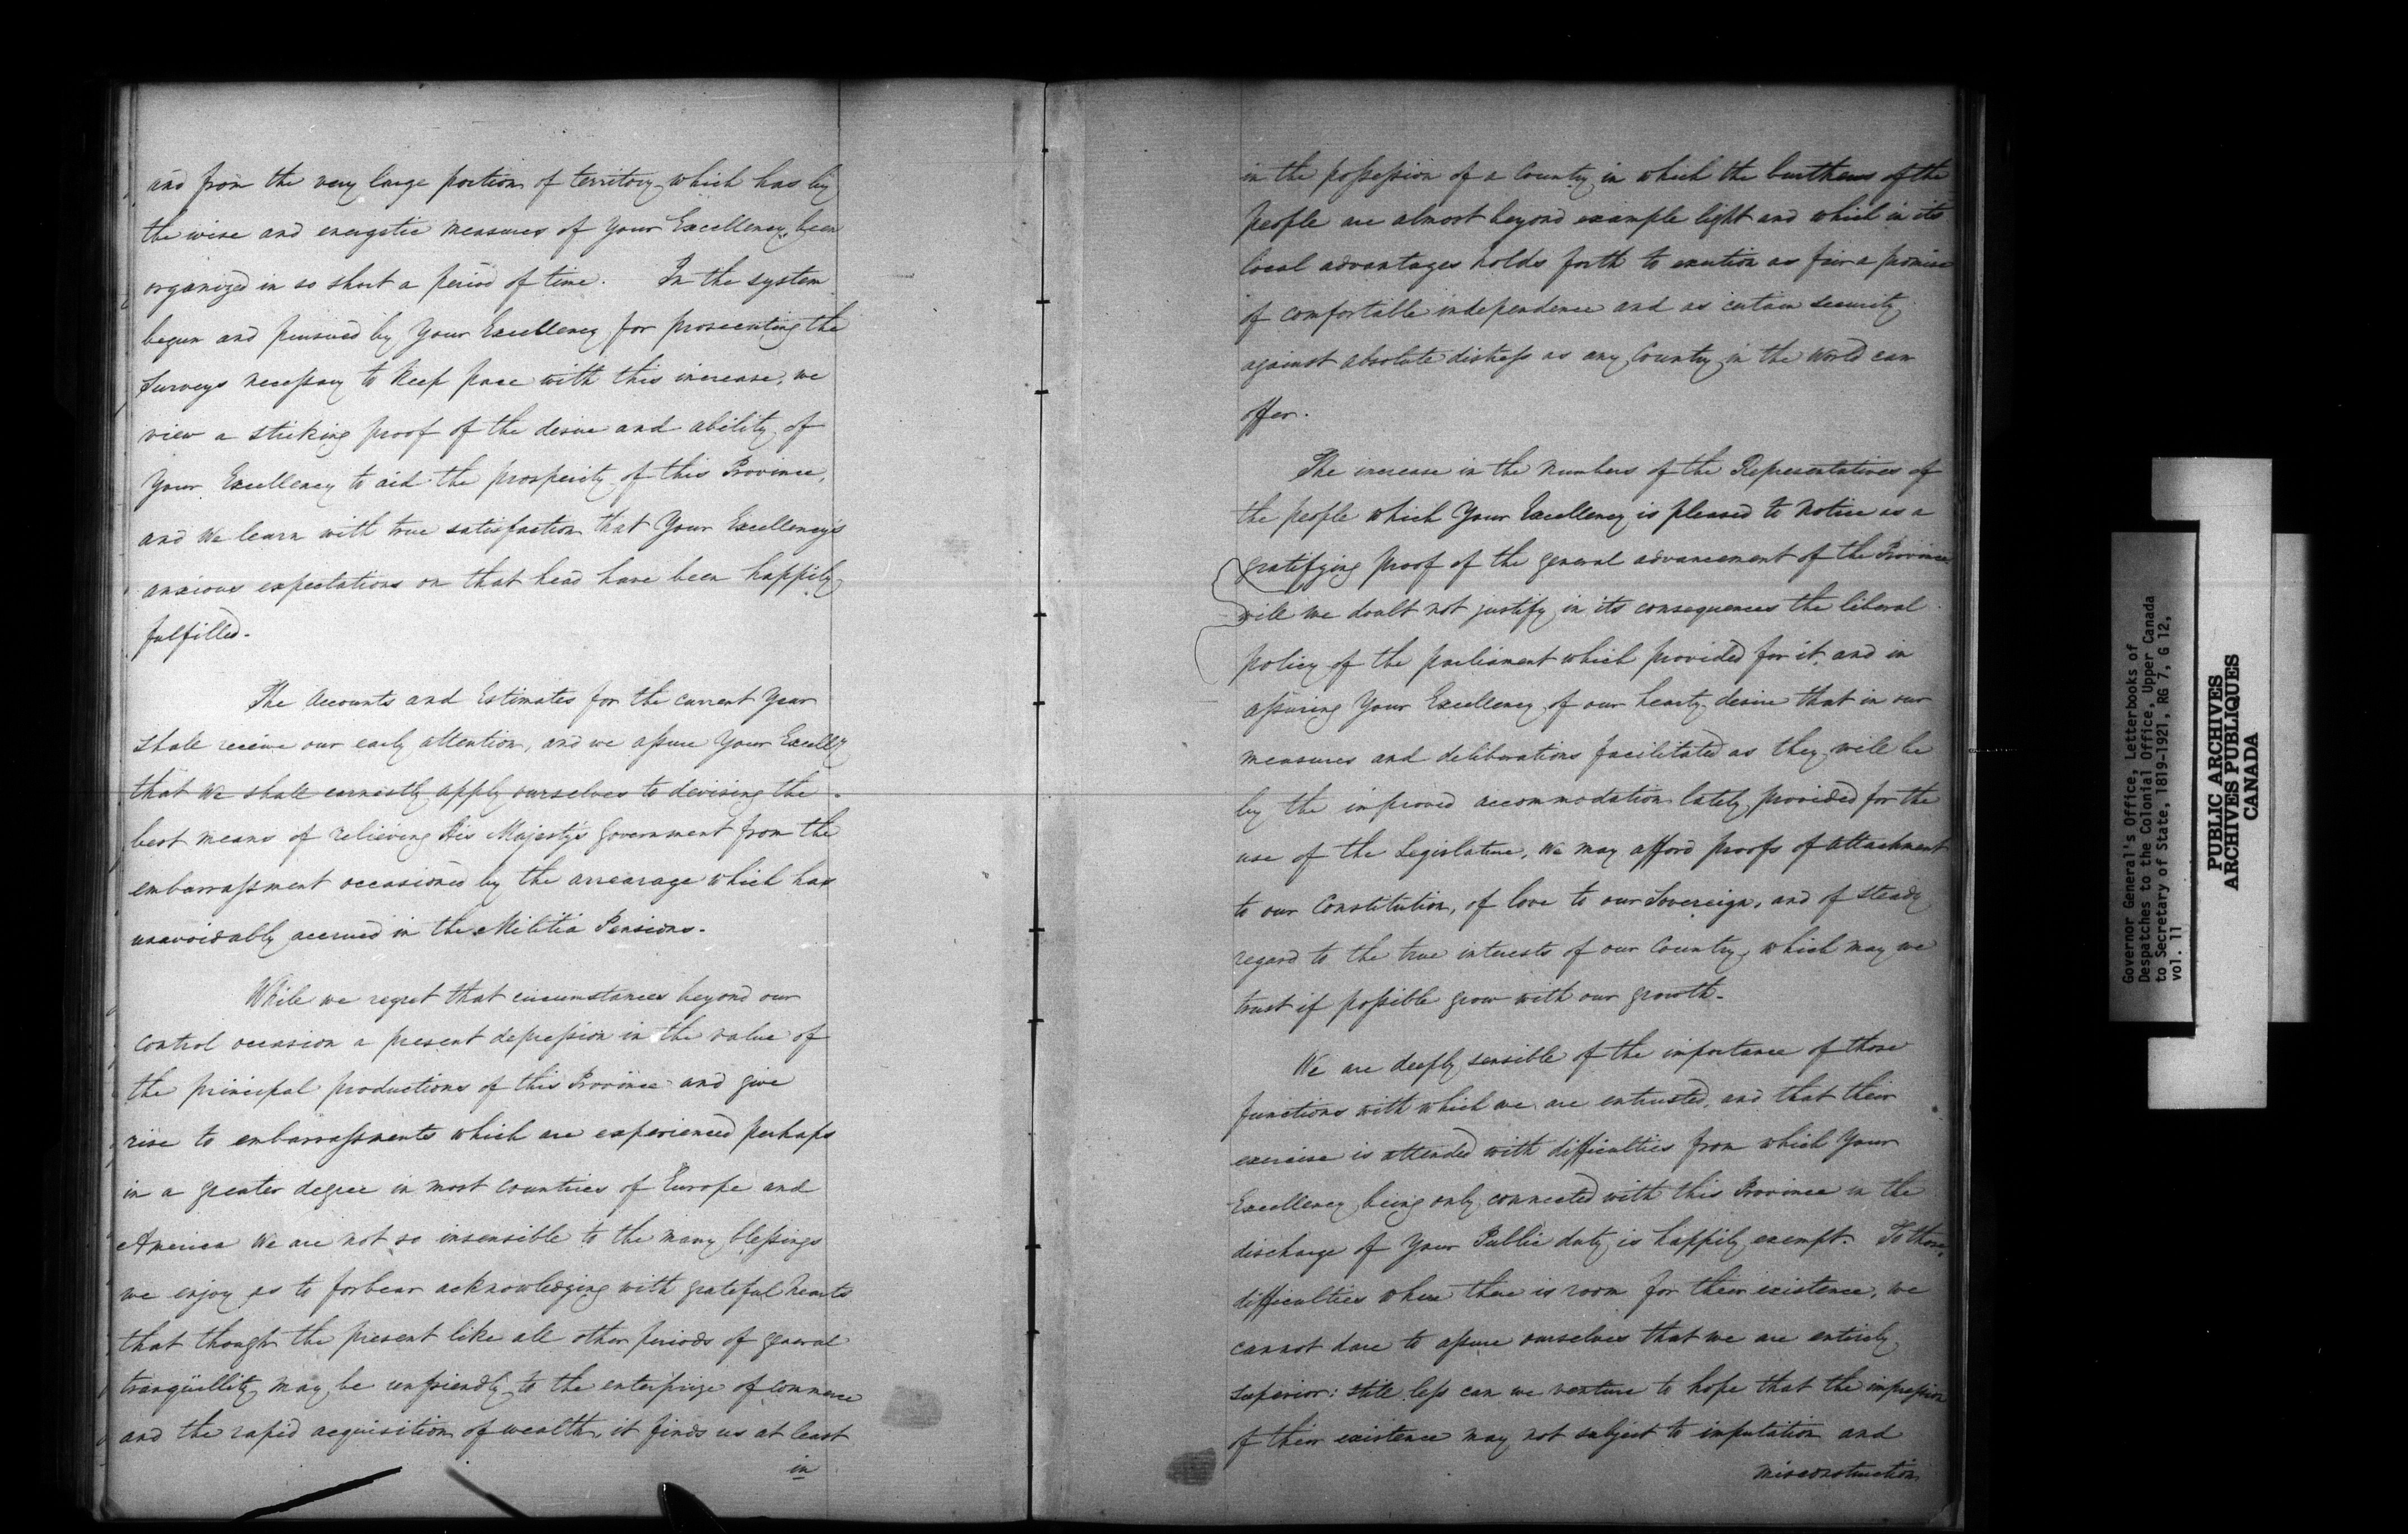 and from the very large portion of territory which has by
the wise and energetic measures of Your Excellency, been
organized in so short a period of time. In the system
begun and pursued by Your Excellency for prosecuting the
Surveys necessary to keep pace with this increase, we
view a striking proof of the desire and ability of
Your Excellency to aid the prosperity of this Province,
and we learn with true satisfaction that Your Excellency's
anxious expectations on that head have been happily
fulfilled.
The Accounts and Estimates for the current Year
shall receive our early attention, and we assure Your Excelly
that we shall earnestly apply ourselves to devising the
best means of relieving His Majesty's Government from the
embarrassment occasioned by the arrearage which has
unavoidably accrued in the Militia Pensions.
While we regret that circumstances beyond our
control occasion a present depression in the value of
the principal productions of this Province and give
rise to embarrassments which are experienced perhaps
in a greater degree in most countries of Europe and
America We are not so insensible to the many blessings
we enjoy as to forbear acknowledging with grateful hearts
that though the present like all other periods of general
tranquillity may be unfriendly to the enterprize of commerce
and the rapid acquisition of wealth, it finds us at least
in
in the possession of a Country in which the burthens of the
people are almost beyond example light and which in its
local advantages holds forth to exertion as fair a promise
of comfortable independence and as certain security
against absolute distress as any Country in the World can
offer.
The increase in the Numbers of the Representatives of
the people which Your Excellency is pleased to Notice as a
gratifying proof of the general advancement of the Province
will we doubt not justify in its consequences the liberal
policy of the parliament which provided for it, and in
assuring Your Excellency of our hearty desire that in our
measures and deliberations facilitated as they will be
by the improved accommodation lately provided for the
use of the Legislature, we may afford proofs of attachment
to our Constitution, of love to our Sovereign, and of steady
regard to the true interests of our Country, which may we
trust if possible grow with our growth.
We are deeply sensible of the importance of those
functions with which we are entrusted, and that their
exercise is attended with difficulties from which Your
Excellency being only connected with this Province in the
discharge of Your Public duty is happily exempt. To those
difficulties where there is room for their existence, we
cannot dare to assure ourselves that we are entirely
superior: still less can we venture to hope that the impression
of their existence may not subject to imputation and
misconstruction
Governor General's Office, Letterbooks of
Despatches to the Colonial Office, Upper Canada
to Secretary of State, 1819-1921, RG 7, G 12,
vol. 11
PUBLIC ARCHIVES
ARCHIVES PUBLIQUES
CANADA